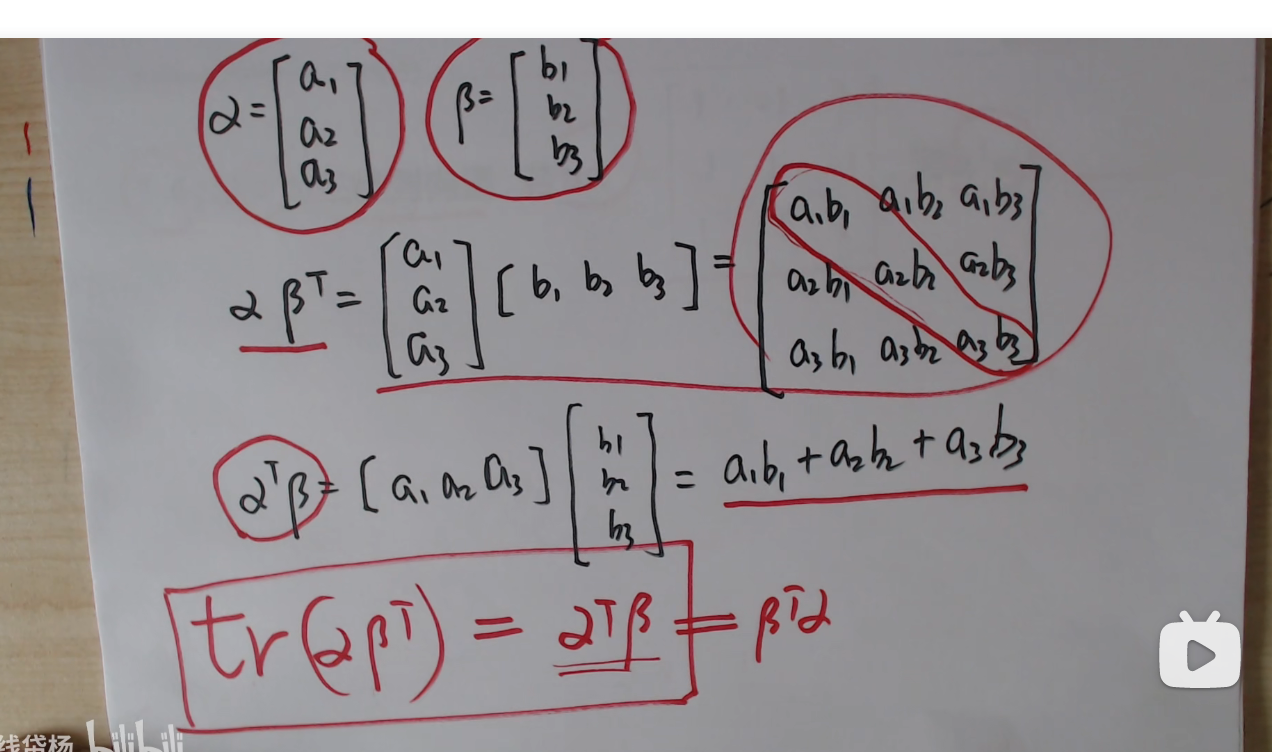 α = [a1 a2 a3] β = [b1 b2 b3]
α β^T = [a1 a2 a3] [b1 b2 b3] = [a1b1 a1b2 a1b3
a2b1 a2b2 a2b3
a3b1 a3b2 a3b3]
α^Tβ = [a1 a2 a3] [b1 b2 b3] = a1b1 + a2b2 + a3b3
tr(αβ^T) = α^Tβ = β^Tα
线代杨 bilibili